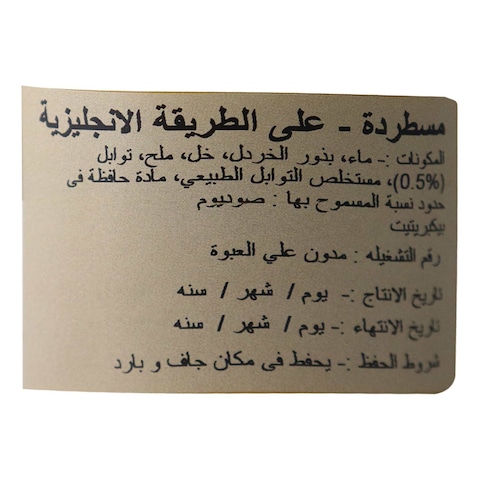 مسطردة - على الطريقة الانجليزية
المكونات :- ماء، بذور الخردل، خل، ملح، توابل
(0.5%)، مستخلص التوابل الطبيعي، مادة حافظة فى
حدود نسبة المسموح بها : صوديوم
بيكبريتيت
رقم التشغيله : مدون علي العبوة
تاريخ الانتاج :- يوم / شهر / سنه
تاريخ الانتهاء :- يوم / شهر / سنه
شروط الحفظ :- يحفظ فى مكان جاف و بارد